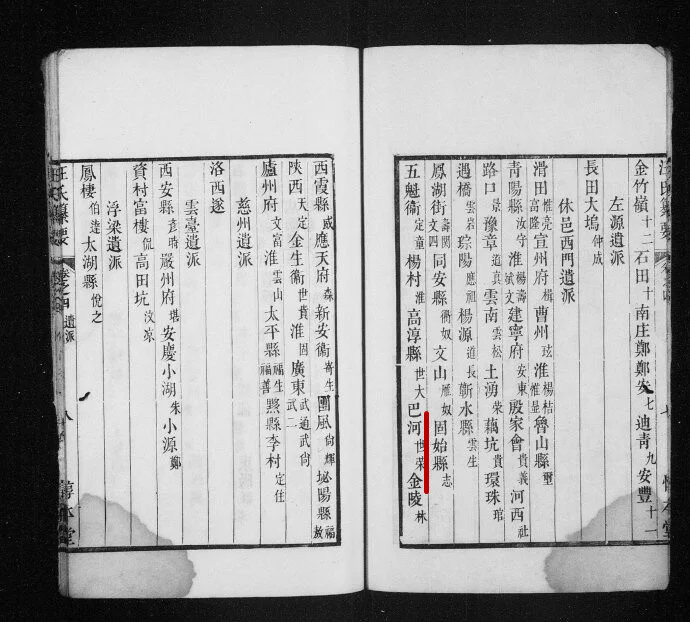 金竹嶺十二石田十南庄鄭鄭安七迪青九安豐十一
左源遺派
長田大塢仲成
休邑西門遺派
滑田惟亮富隆宣州府楫曹州玹淮楊桔惟显魯山縣璽
青陽縣汝守淮楊壽斌文建寧府安東殷家會貴義河西社
路口景豫章道真雲南雲松土湧荣藕坑貴環珠琯
過橋雲岩琮陽應祖楊源道長蘄水縣雲生
鳳湖街壽閱文四同安縣衝奴文山雁奴固始縣志
五魁衞定童楊村淮高淳縣世大巴河世荣金陵林
七
西霞縣威應天府森新安衞寄生團風尚輝坳陽縣福敖
陜西天定金生衞世貴淮固廣東武通武尚武二
廬州府文富淮雲山太平縣福生福善黟縣李村定住
慈州遺派
洛西遂
雲臺遺派
西安縣彥時嚴州府堪安慶小湖朱小源鄭
資村富樓侃高田坑汶凉
浮梁遺派
鳳棲伯逵太湖縣悅之
汪氏纂要 卷之四 遺派 八